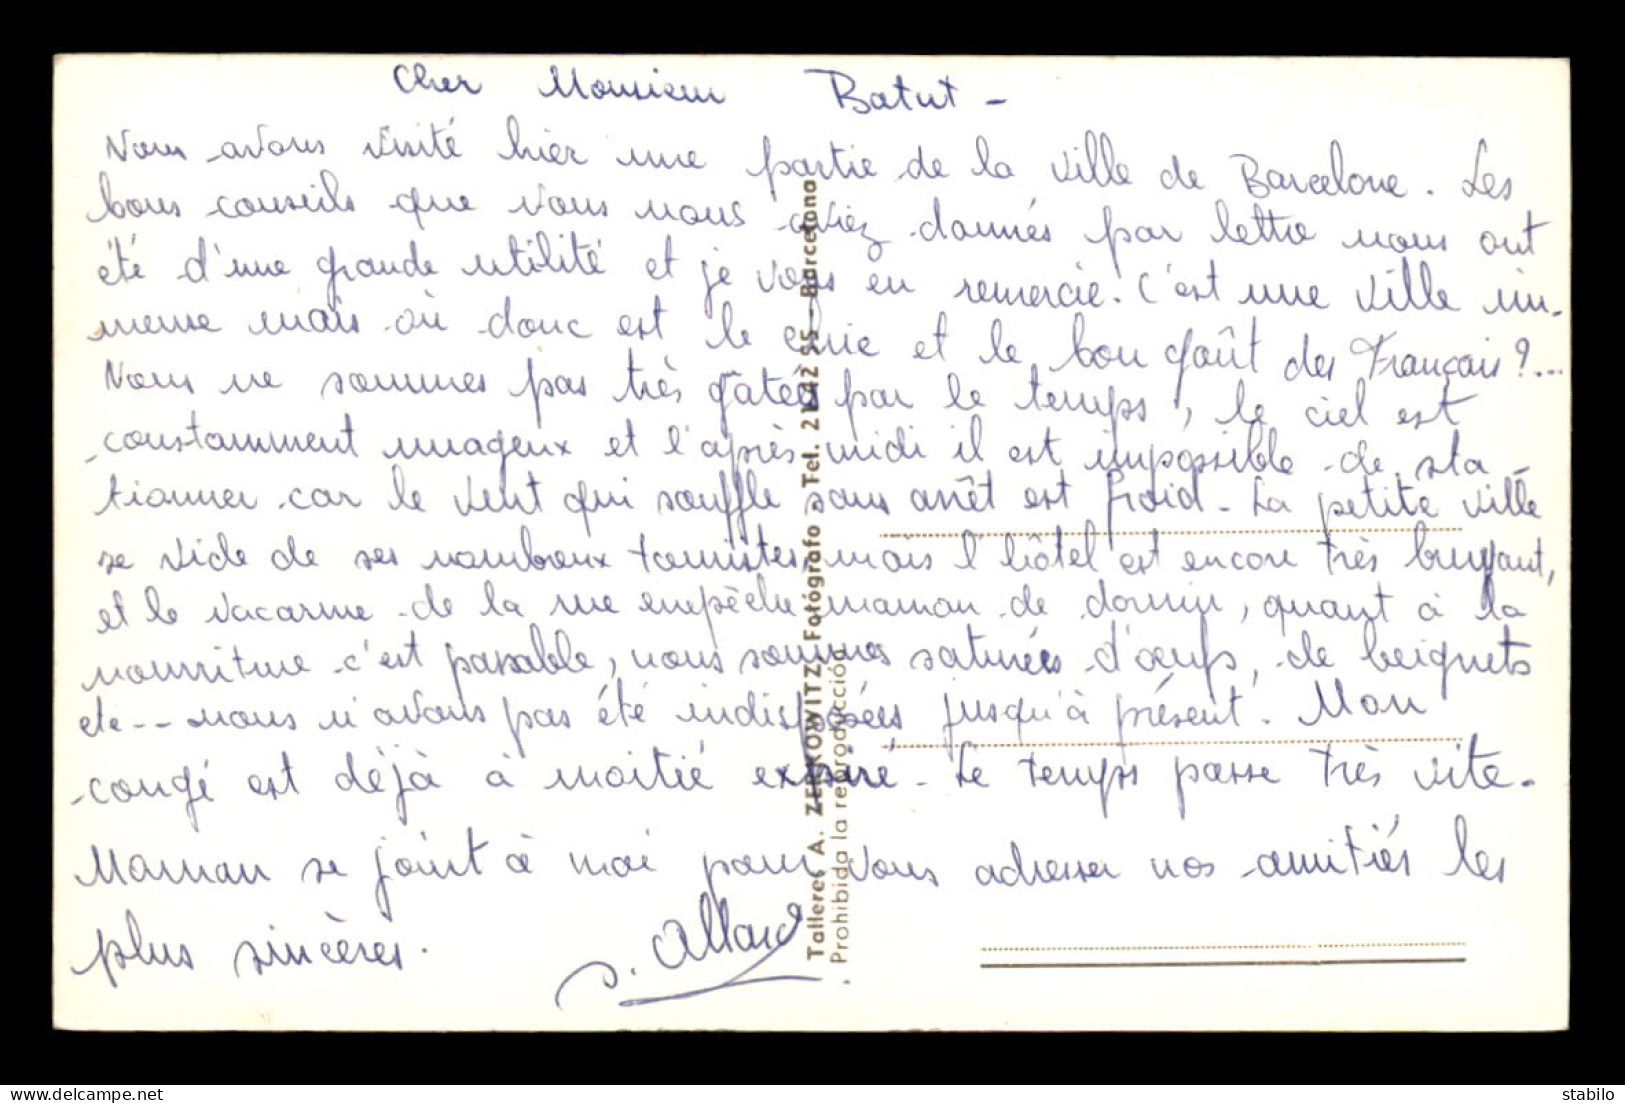 Cher Monsieur Batut -
Nous avons visité hier une partie de la ville de Barcelone. Les
bons conseils que vous nous aviez donnés par lettre nous ont
été d'une grande utilité et je vous en remercie. C'est une ville im-
mense mais où donc est le chic et le bon goût des Français ?...
Nous ne sommes pas très gâtées par le temps, le ciel est
constamment nuageux et l'après-midi il est impossible de sta-
tionner car le vent qui souffle sans arrêt est froid - La petite ville
se vide de ses nombreux touristes, mais l'hôtel est encore très bruyant,
et le vacarme de la rue empêche maman de dormir, quant à la
nourriture c'est passable, nous sommes saturées d'œufs, de beignets
etc -- nous n'avons pas été indisposées jusqu'à présent. Mon
congé est déjà à moitié expiré - Le temps passe très vite -
Maman se joint à moi pour vous adresser nos amitiés les
plus sincères.
S. Allard
Talleres A. ZERKOWITZ, Fotógrafo - Tel. 214295 - Barcelona
Prohibida la reproducción.
stabilo
delcampe.net